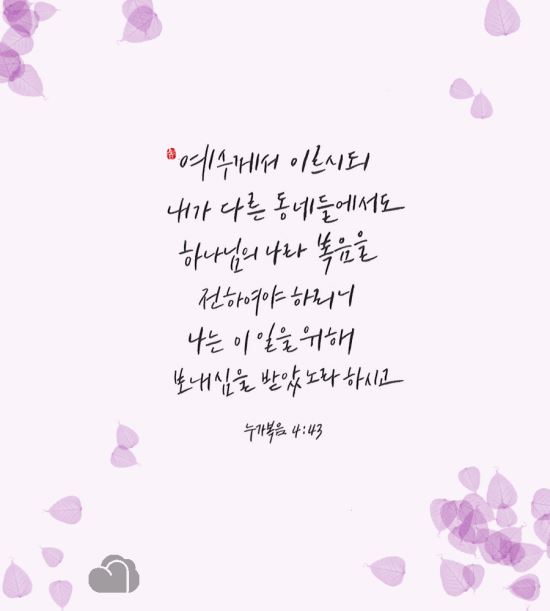 예수께서 이르시되
내가 다른 동네들에서도
하나님의 나라 복음을
전하여야 하리니
나는 이 일을 위해
보내심을 받았노라 하시고
누가복음 4:43